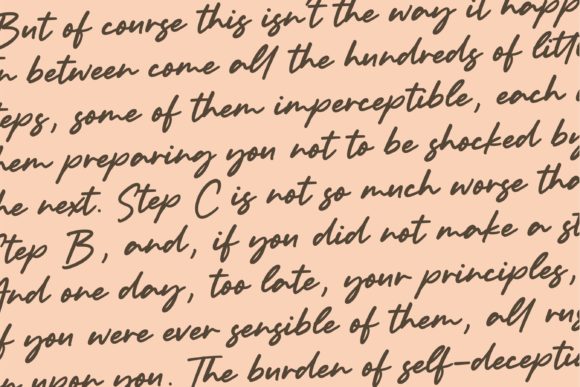 But of course this isn't the way it happ
n between come all the hundreds of littl
teps, some of them imperceptible, each
hem preparing you not to be shocked by
he next. Step C is not so much worse tha
Step B, and, if you did not make a st
And one day, too late, your principles,
f you were ever sensible of them, all rus
upon you. The burden of self-decepti